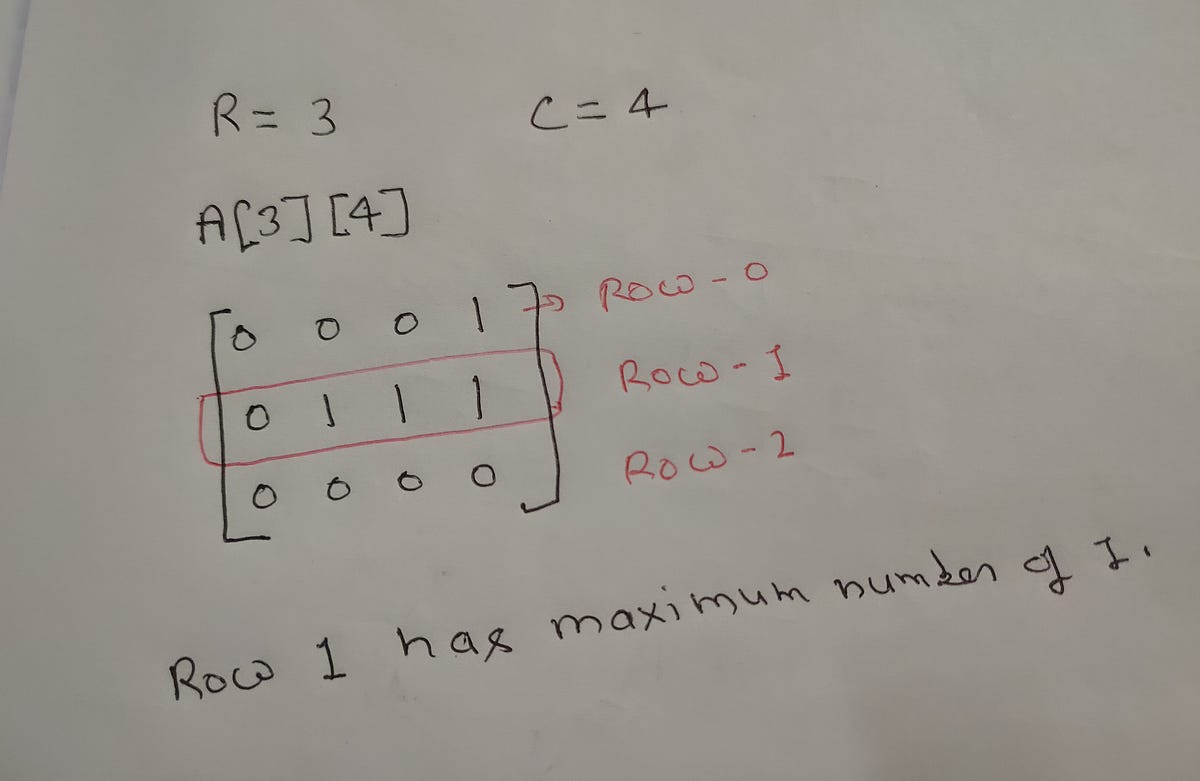 R = 3 C = 4
A[3][4]
0 0 0 1 → Row - 0
0 1 1 1 Row - 1
0 0 0 0 Row - 2
Row 1 has maximum number of 1.